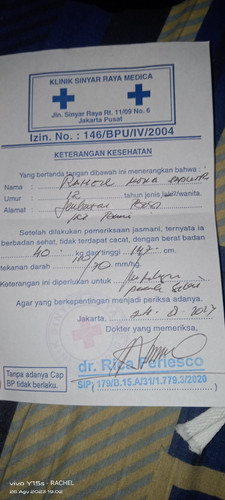 KLINIK SINYAR RAYA MEDICA
Jln. Sinyar Raya Rt. 11/09 No. 6
Jakarta Pusat
Izin. No. : 146/BPU/IV/2004
KETERANGAN KESEHATAN
Yang bertanda tangan dibawah ini menerangkan bahwa :
Nama :
Umur : 12 tahun jenis laki²/wanita.
Alamat :
Setelah dilakukan pemeriksaan jasmani, ternyata ia
berbadan sehat, tidak terdapat cacat, dengan berat badan
40 kg dan tinggi 147 cm.
tekanan darah /70 mm/hg
Keterangan ini diperlukan untuk :
Agar yang berkepentingan menjadi periksa adanya.
Jakarta,
Dokter yang memeriksa,
Tanpa adanya Cap
BP tidak berlaku.
dr. Rica Fenesco
SIP. 179/B.15.A/31/1.779.3/2020
vivo Y15s · RACHEL
26 Agu 2023 19:02